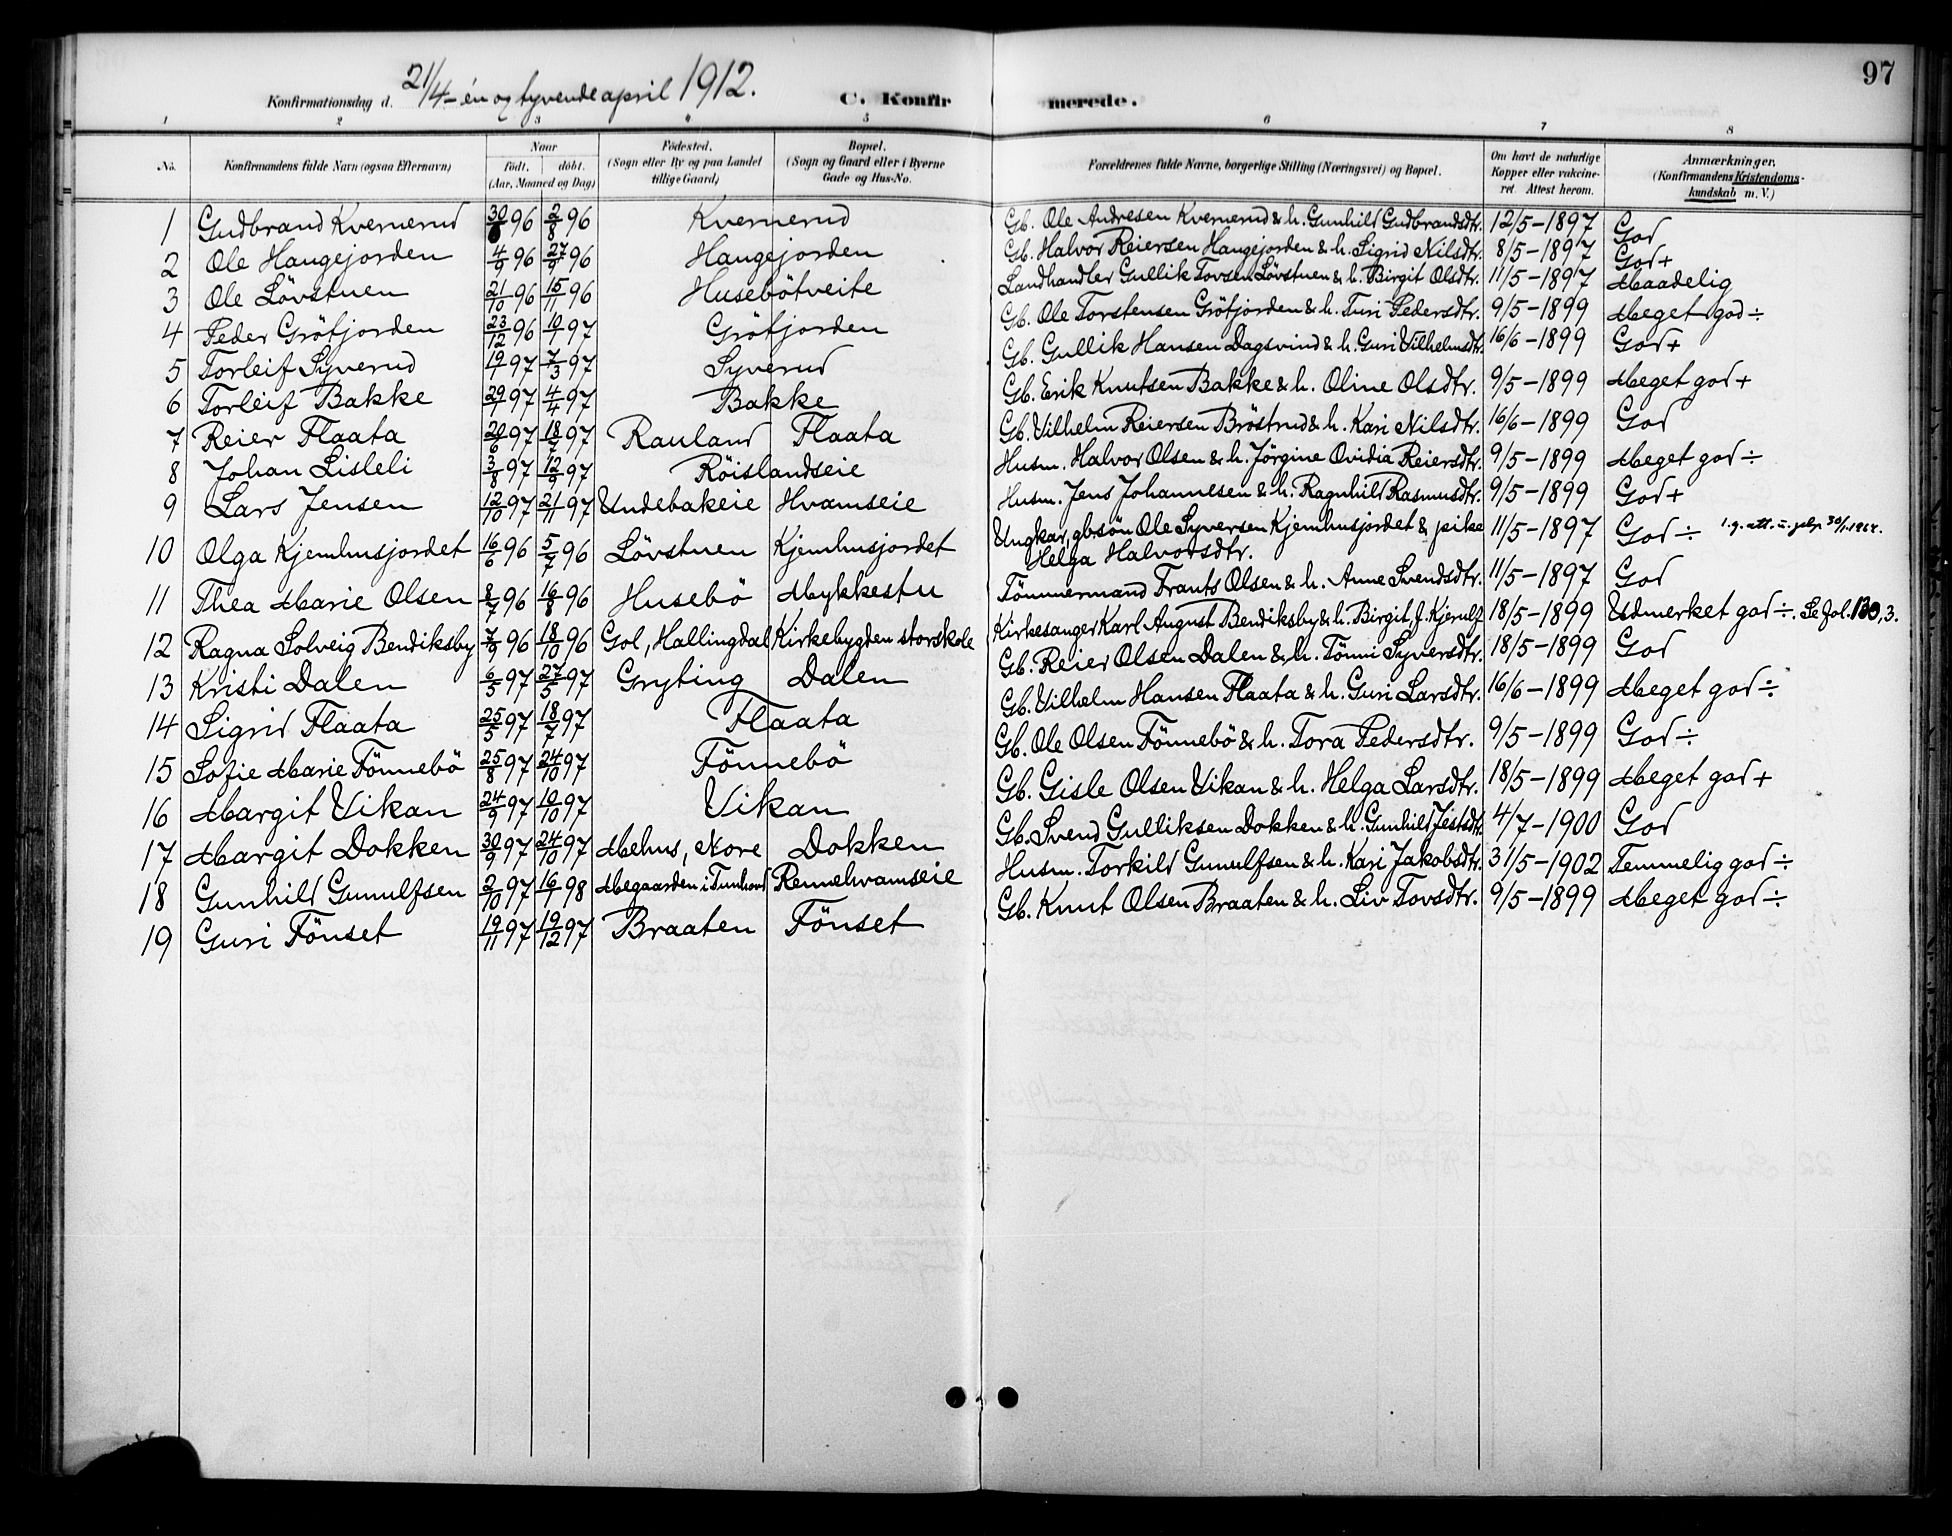 97
Konfirmationsdag d. 21/4 – én og tyvende april 1912. C. Konfirmerede.
1 2 3 4 5 6 7 8
No. Konfirmandens fulde Navn (ogsaa Efternavn) Naar født. døbt. (Aar, Maaned og Dag) Fødested. (Sogn eller By og paa Landet tillige Gaard) Bopæl. (Sogn og Gaard eller i Byerne Gade og Hus-No. Forældrenes fulde Navne, borgerlige Stilling (Næringsvei) og Bopæl. Om havt de naturlige Kopper eller vakcineret. Attest herom. Anmærkninger. (Konfirmandens Kristendomskundskab m. V.)
1 Gudbrand Kvernerud 30/6 96 2/8 96 Kvernerud Gb. Ole Andresen Kvernerud & h. Gunhild Gudbrandsdtr. 12/5 – 1897 God
2 Ole Haugejorden 4/9 96 27/9 96 Haugejorden Gb. Halvor Reiersen Haugejorden & h. Sigrid Nilsdtr. 8/5 – 1897 God +
3 Ole Lövstuen 21/10 96 15/11 96 Husebötveite Landhandler Gullik Tovsen Lövstuen & h. Birgit Olsdtr. 11/5 – 1897 Maadelig
4 Peder Gröfjorden 23/12 96 10/1 97 Gröfjorden Gb. Ole Torstensen Gröfjorden & h. Turi Pedersdtr. 9/5 – 1899 Meget god ÷
5 Torleif Syverud 19/1 97 7/3 97 Syverud Gb. Gullik Hansen Dagsvind & h. Guri Vilhelmsdtr. 16/6 – 1899 God +
6 Torleif Bakke 29/1 97 4/4 97 Bakke Gb. Erik Knutsen Bakke & h. Oline Olsdtr. 9/5 – 1899 Meget god +
7 Reier Flaata 20/6 97 18/7 97 Rauland Flaata Gb. Vilhelm Reiersen Bröstrud & h. Kari Nilsdtr. 16/6 – 1899 God
8 Johan Lisleli 3/8 97 12/9 97 Röislandseie Husm. Halvor Olsen & h. Jörgine Ovidia Reiersdtr. 9/5 – 1899 Meget god ÷
9 Lars Jensen 12/10 97 21/11 97 Undebakeie Hvamseie Husm. Jens Johannesen & h. Ragnhild Rasmusdtr. 9/5 – 1899 God +
10 Olga Kjemhusjordet 16/6 96 5/7 96 Lövstuen Kjemhusjordet Ungkar, gb.sön Ole Syversen Kjemhusjordet & pike 11/5 – 1897 God ÷
Helga Halvorsdtr.
11 Thea Marie Olsen 8/7 96 16/8 96 Husebö Mykkestu Tömmermand Frants Olsen & h. Anne Svendsdtr. 11/5 – 1897 God
12 Ragna Solveig Bendiksby 7/9 96 18/10 96 Gol, Hallingdal Kirkebygden storskole Kirkesanger Karl August Bendiksby & h. Birgit, f. Kjerulf 18/5 – 1899 Udmerket god ÷. Se fol. 130, 3.
13 Kristi Dalen 6/5 97 27/5 97 Gryting Dalen Gb. Reier Olsen Dalen & h. Tönni Syversdtr. 18/5 – 1899 God
14 Sigrid Flaata 25/5 97 18/7 97 Flaata Gb. Vilhelm Hansen Flaata & h. Guri Larsdtr. 16/6 – 1899 Meget god ÷
15 Sofie Marie Tönnebö 25/8 97 24/10 97 Tönnebö Gb. Ole Olsen Tönnebö & h. Tora Pedersdtr. 9/5 – 1899 God ÷
16 Margit Vikan 24/9 97 10/10 97 Vikan Gb. Gisle Olsen Vikan & h. Helga Larsdtr. 18/5 – 1899 Meget god +
17 Margit Dokken 30/9 97 24/10 97 Mehus, Nore Dokken Gb. Svend Gulliksen Dokken & h. Gunhild Jestsdtr. 4/7 – 1900 God
18 Gunhild Gunulfsen 2/10 97 16/1 98 Megaarden i Tunhovd Rennehvamseie Husm. Torkild Gunulfsen & h. Kari Jakobsdtr. 31/5 – 1902 Temmelig god ÷
19 Guri Fönset 19/11 97 19/12 97 Braaten Fönset Gb. Knut Olsen Braaten & h. Liv Tovsdtr. 9/5 – 1899 Meget god ÷